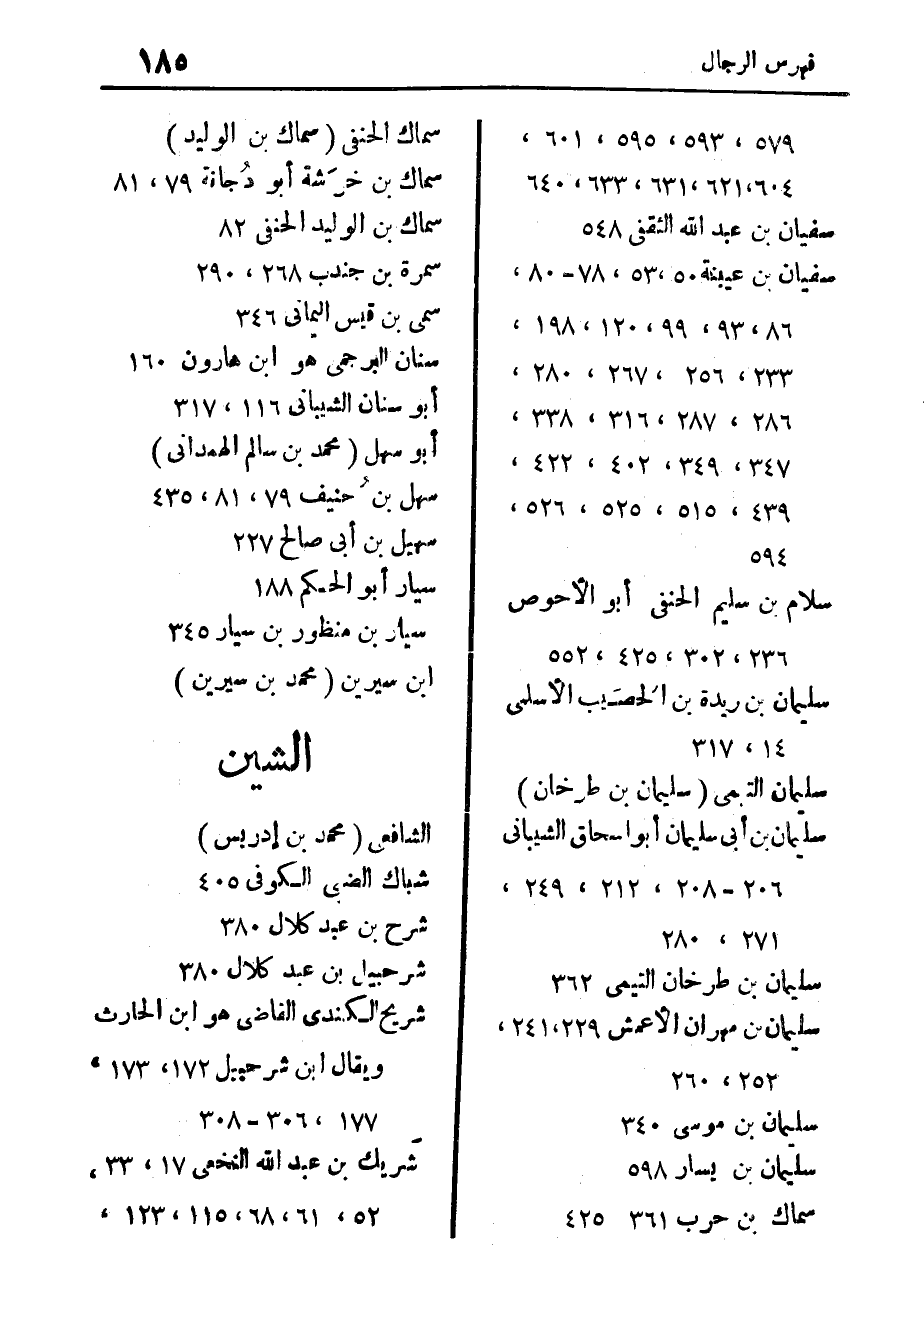 فهرس الرجال ١٨٥
٥٧٩ ، ٥٩٣ ، ٥٩٥ ، ٦٠١ ،
٦٠٤ ،٦٢١ ،٦٣١ ،٦٣٣ ، ٦٤٠
سفيان بن عبد الله الثقفى ٥٤٨
سفيان بن عيينة ٥٠ ،٥٣ ، ٧٨ – ٨٠ ،
٨٦ ، ٩٣ ، ٩٩ ، ١٢٠ ، ١٩٨ ،
٢٣٣ ، ٢٥٦ ، ٢٦٧ ، ٢٨٠ ،
٢٨٦ ، ٢٨٧ ، ٣١٦ ، ٣٣٨ ،
٣٤٧ ، ٣٤٩ ، ٤٠٢ ، ٤٢٢ ،
٤٣٩ ، ٥١٥ ، ٥٢٥ ، ٥٢٦ ،
٥٩٤
سلام بن سليم الحنفى أبو الأحوص
٢٣٦ ، ٣٠٢ ، ٤٢٥ ، ٥٥٢
سليمان بن ريدة بن الحصَيب الأسلمى
١٤ ، ٣١٧
سليمان التيمى ( سليمان بن طرخان )
سليمان بن أبى سليمان أبو اسحاق الشيبانى
٢٠٦ – ٢٠٨ ، ٢١٢ ، ٢٤٩ ،
٢٧١ ، ٢٨٠
سليمان بن طرخان التيمى ٣٦٢
سليمان بن مهران الأعمش ٢٢٩ ،٢٤١ ،
٢٥٢ ، ٢٦٠
سليمان بن موسى ٣٤٠
سليمان بن يسار ٥٩٨
سماك بن حرب ٣٦١ ٤٢٥
سماك الحنفى ( سماك بن الوليد )
سماك بن خرَشة أبو دُجانة ٧٩ ، ٨١
سماك بن الوليد الحنفى ٨٢
سمرة بن جندب ٢٦٨ ، ٢٩٠
سمى بن قيس اليمانى ٣٤٦
سنان البرجمى هو ابن هارون ١٦٠
أبو سنان الشيبانى ١١٦ ، ٣١٧
أبو سهل ( محمد بن سالم الهمدانى )
سهل بن حُنيف ٧٩ ، ٨١ ، ٤٣٥
سهيل بن أبى صالح ٢٢٧
سيار أبو الحكم ١٨٨
سيار بن منظور بن سيار ٣٤٥
ابن سيرين ( محمد بن سيرين )
الشين
الشافعى ( محمد بن إدريس )
شباك الضبى الكوفى ٤٠٥
شرح بن عبد كلال ٣٨٠
شرحبيل بن عبد كلال ٣٨٠
شريح الكندى القاضى هو ابن الحارث
ويقال ابن شرحبيل ١٧٢ ، ١٧٣ ،
١٧٧ ، ٣٠٦ – ٣٠٨
شَريك بن عبد الله النخعى ١٧ ، ٣٣ ،
٥٢ ، ٦١ ، ٦٨ ، ١١٥ ، ١٢٣ ،